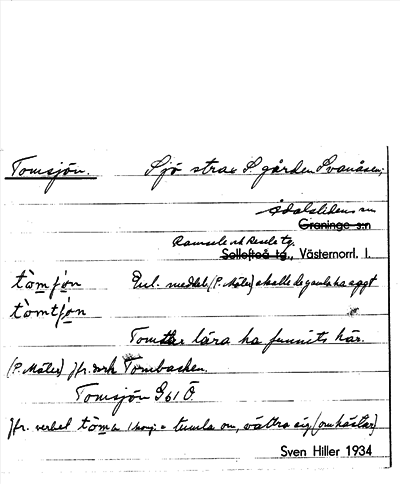 Tomsjön. Sjö strax S. gården Svanåsen;
Ådalslidens sn
Graninge s:n
Ramsele och Resele tg.
Sollefteå tg., Västernorrl. l.
tòmʃön Enl. meddel. (P. Mäler) skulle de gamla ha sagt
tòmtjön
Tomter lära ha funnits här.
(P. Mäler) Jfr. dock Tombacken.
Tomsjön G 61 Ö
Jfr. verbet töma = tumla om, vältra sig (om hästar)
Sven Hiller 1934